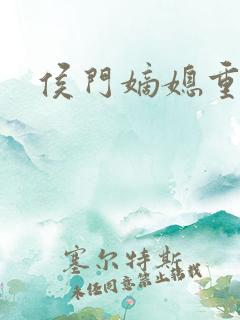 侯門嫡媳重
塞尔特斯
未经同意禁止转载